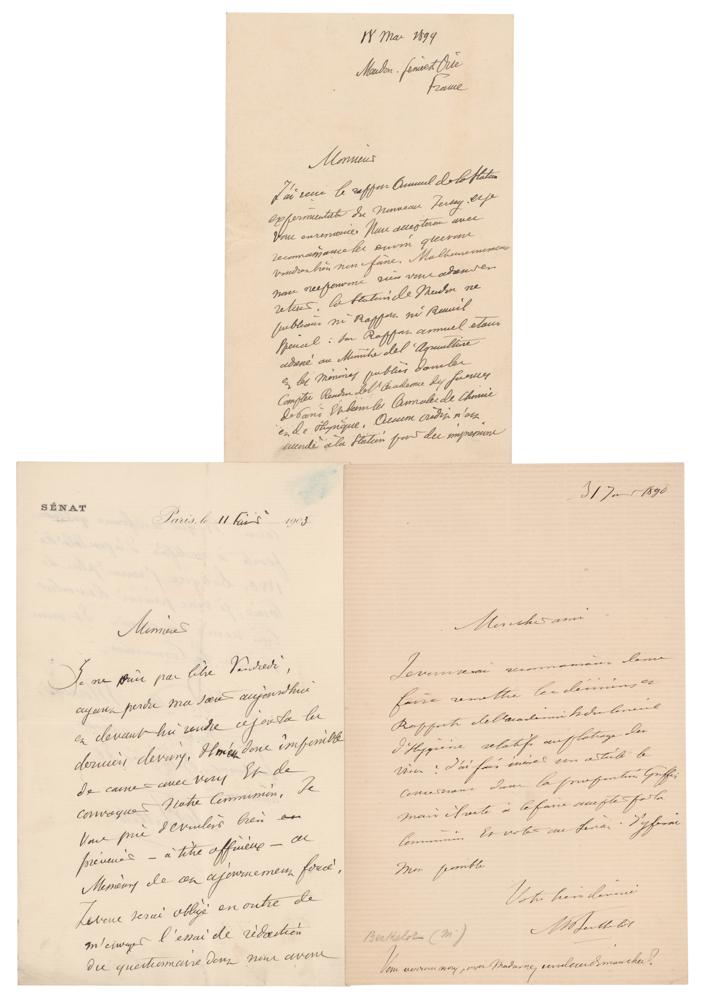 18 Mai 1899
Meudon. Seine et Oise
France
Monsieur
J'ai reçu le rapport Annuel de la Station
expérimentale du Nouveau Jersey et je
vous en remercie. Nous accepterons avec
reconnaissance les envois que vous
voudrez bien nous faire. Malheureusement
nous ne pouvons rien vous adresser en
retour. La Station de Meudon ne
publiant ni Rapport ni Recueil
spécial : son Rapport annuel étant
adressé au Ministre de l'Agriculture
et les mémoires publiés dans les
Comptes Rendus de l'Académie des Sciences
de Paris et dans les Annales de Chimie
et de Physique. Aucun crédit n'est
accordé à la Station pour des impressions
SÉNAT
Paris, le 11 1903
Monsieur
Je ne puis pas être Vendredi,
ayant perdu ma sœur aujourd'hui
et devant lui rendre ce jour là les
derniers devoirs. Il m'est donc impossible
de causer avec vous Et de
convoquer Notre Commission. Je
vous prie de vouloir bien en
prévenir – à titre officieux – ces
Messieurs de cet ajournement forcé.
Je vous serai obligé en outre de
m'envoyer l'essai de rédaction
du questionnaire dont nous avons
31 1890
Mon cher ami
Je vous serai reconnaissant de me
faire remettre les décisions et
Rapports de l'académie et du Conseil
d'Hygiène relatifs au plâtrage des
vins : J'ai fait insérer un article le
concernant dans la proposition Griffe
mais il reste à le faire accepter par la
commission Et voter au Sénat. J'y ferai
mon possible
Votre bien dévoué
M Berthelot
Berthelot (M)
Vous verrons nous, avec Madame, un dimanche ?